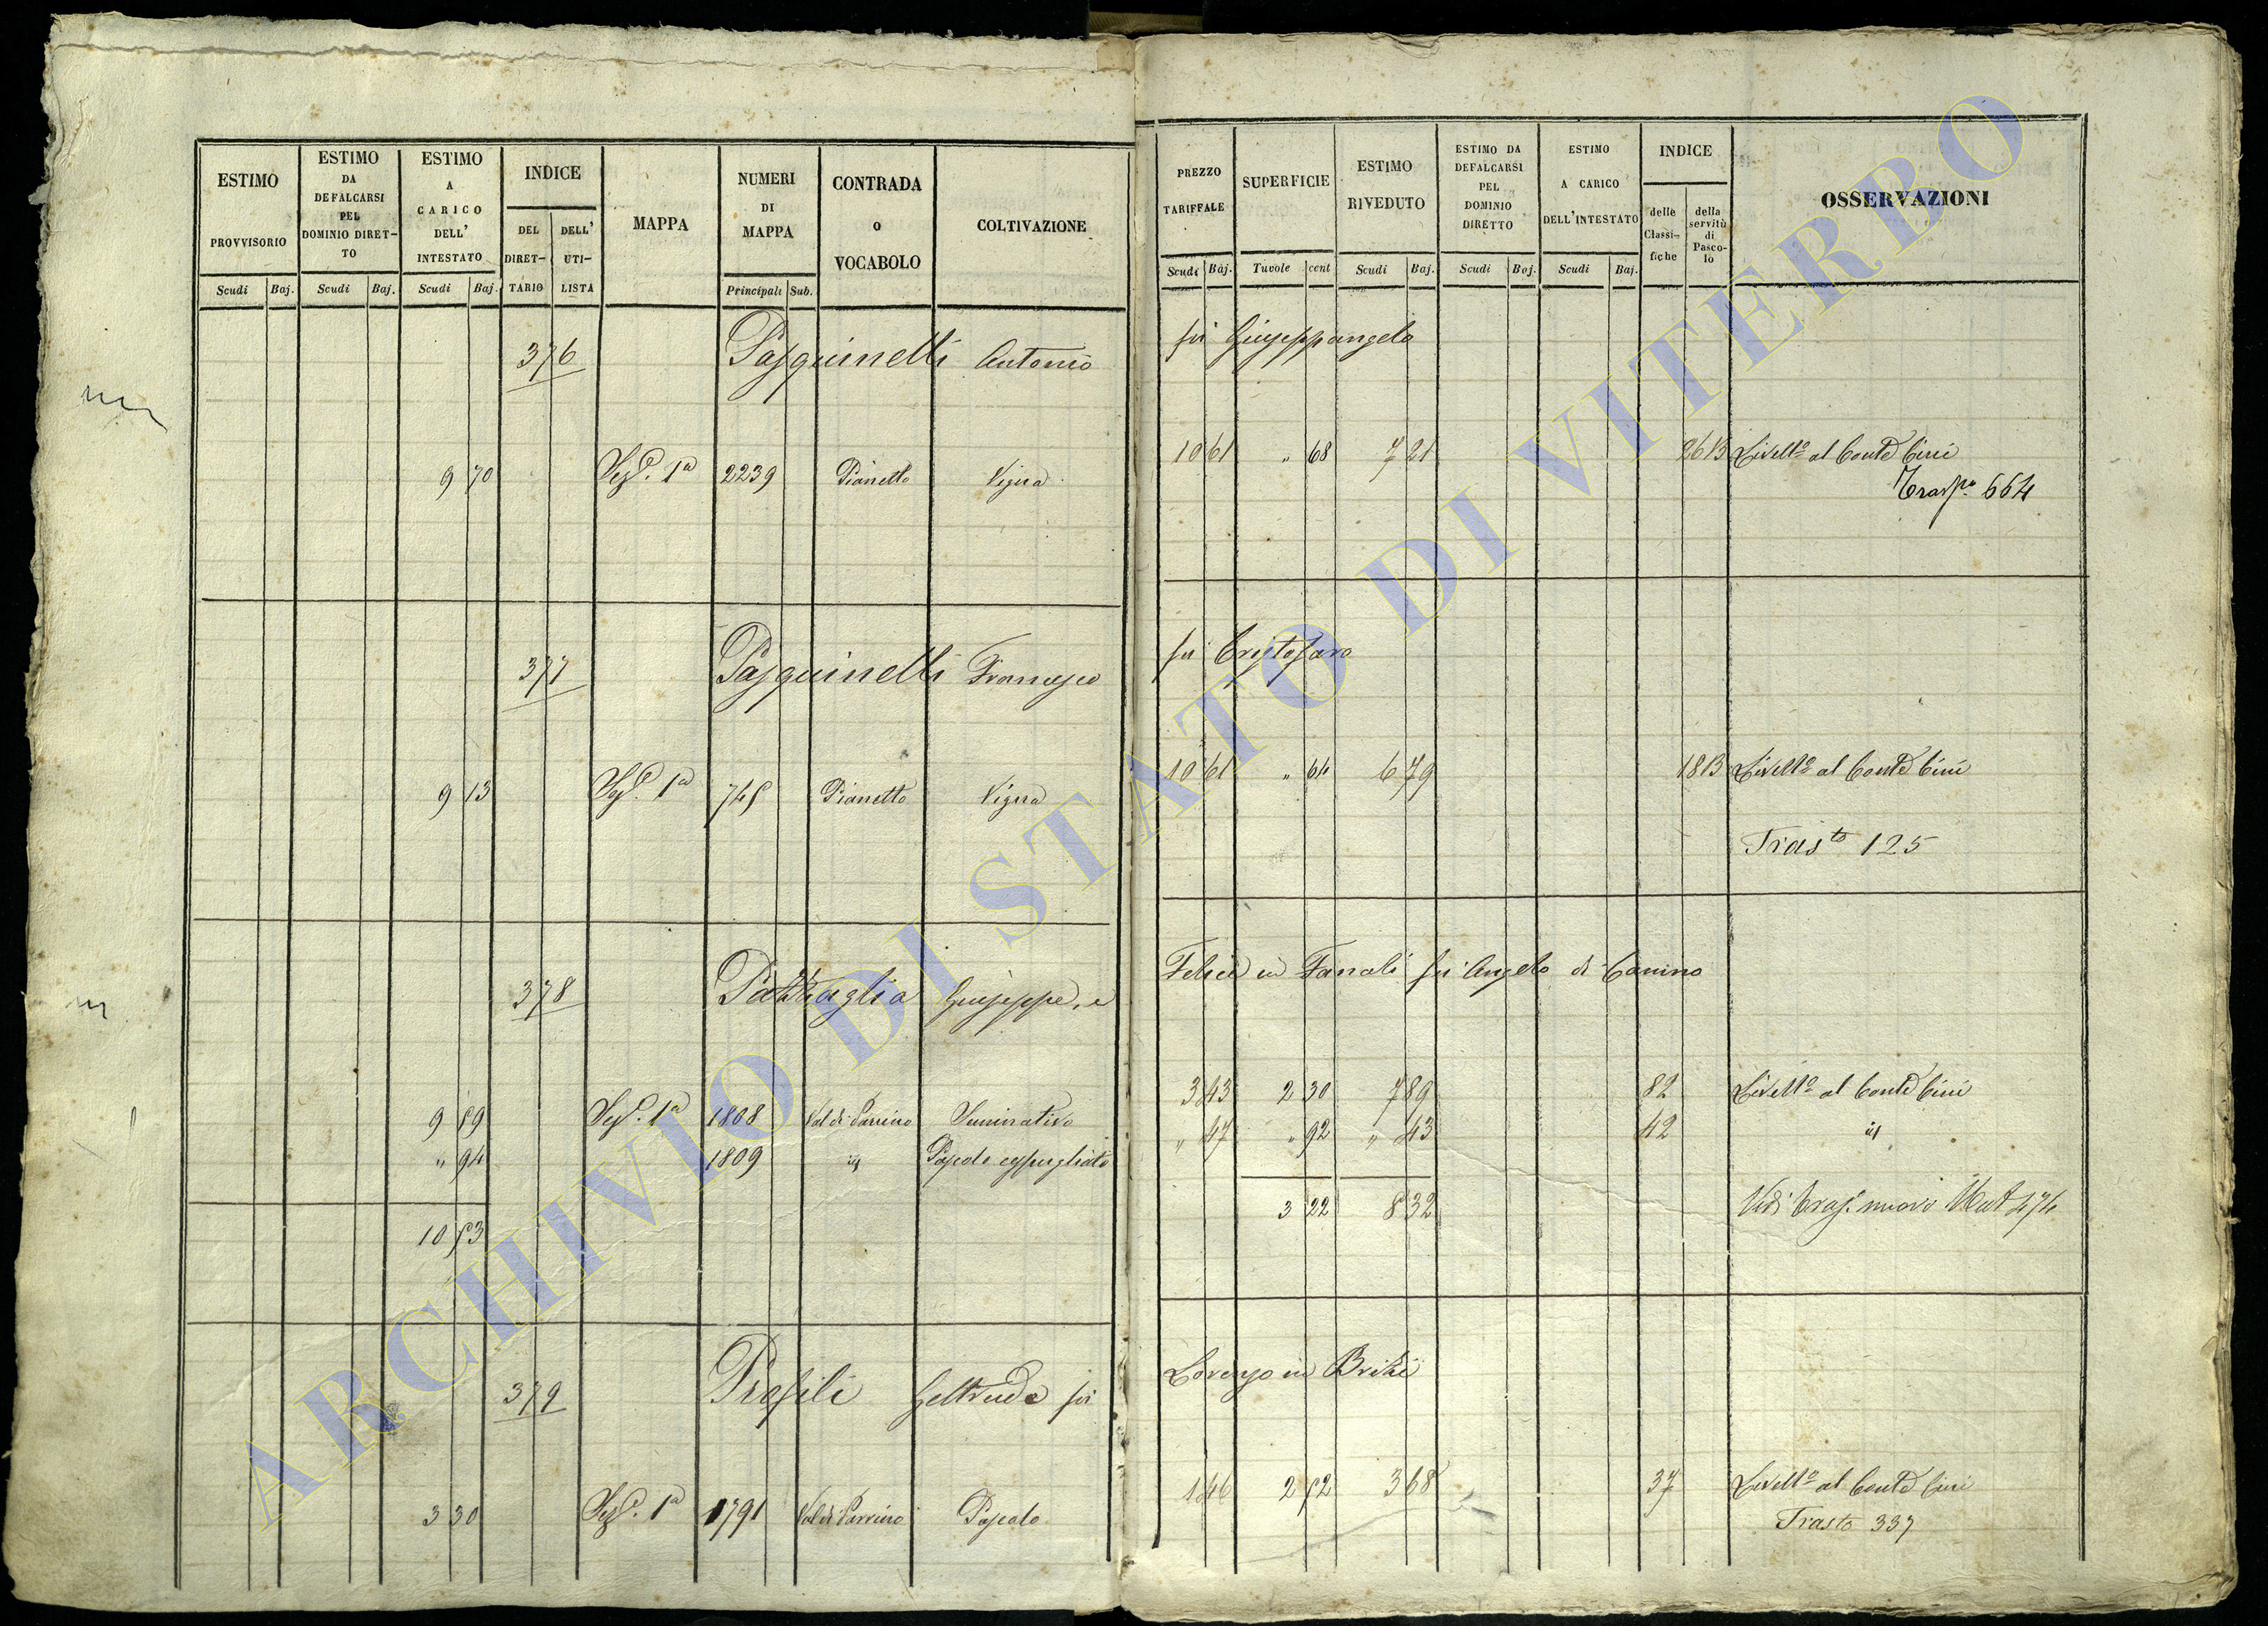 ESTIMO PROVVISORIO Scudi Baj.
ESTIMO DA DEFALCARSI PEL DOMINIO DIRET-TO Scudi Baj.
ESTIMO A CARICO DELL' INTESTATO Scudi Baj.
INDICE DEL DIRET-TARIO DELL' UTI-LISTA
MAPPA
NUMERI DI MAPPA Principali Sub.
CONTRADA O VOCABOLO
COLTIVAZIONE
PREZZO TARIFFALE Scudi Baj.
SUPERFICIE Tavole cent
ESTIMO RIVEDUTO Scudi Baj.
ESTIMO DA DEFALCARSI PEL DOMINIO DIRETTO Scudi Baj.
ESTIMO A CARICO DELL'INTESTATO Scudi Baj.
INDICE delle Classi-fiche della servitù di Pasco-lo
OSSERVAZIONI
376 Pasquinelli Antonio fu Giuseppangelo
9 70 Seze. 1a 2239 Pianetto Vigna 10 61 " 68 7 21 26 13 Livello al Conte Cini
Traspo. 664
377 Pasquinelli Francesco fu Cristofaro
9 13 Seze. 1a 745 Pianetto Vigna 10 61 " 64 6 79 18 13 Livello al Conte Cini
Trasto 125
378 Pazzaglia Giuseppe, e Felice in Fanali fu Angelo di Canino
9 59 Seze. 1a 1808 Val di Parrino Seminativo 3 43 2 30 7 89 82 Livello al Conte Cini
" 94 1809 id Pascolo cespugliato " 47 " 92 " 43 42 id
10 53 3 22 8 32 Vedi Trasp. nuovo Mat 474
379 Profili Geltrude fu Lorenzo in Brizi
3 30 Seze. 1a 1791 Val di Parrino Pascolo 1 46 2 52 3 68 37 Livello al Conte Cini
Trasto 337
ARCHIVIO DI STATO DI VITERBO